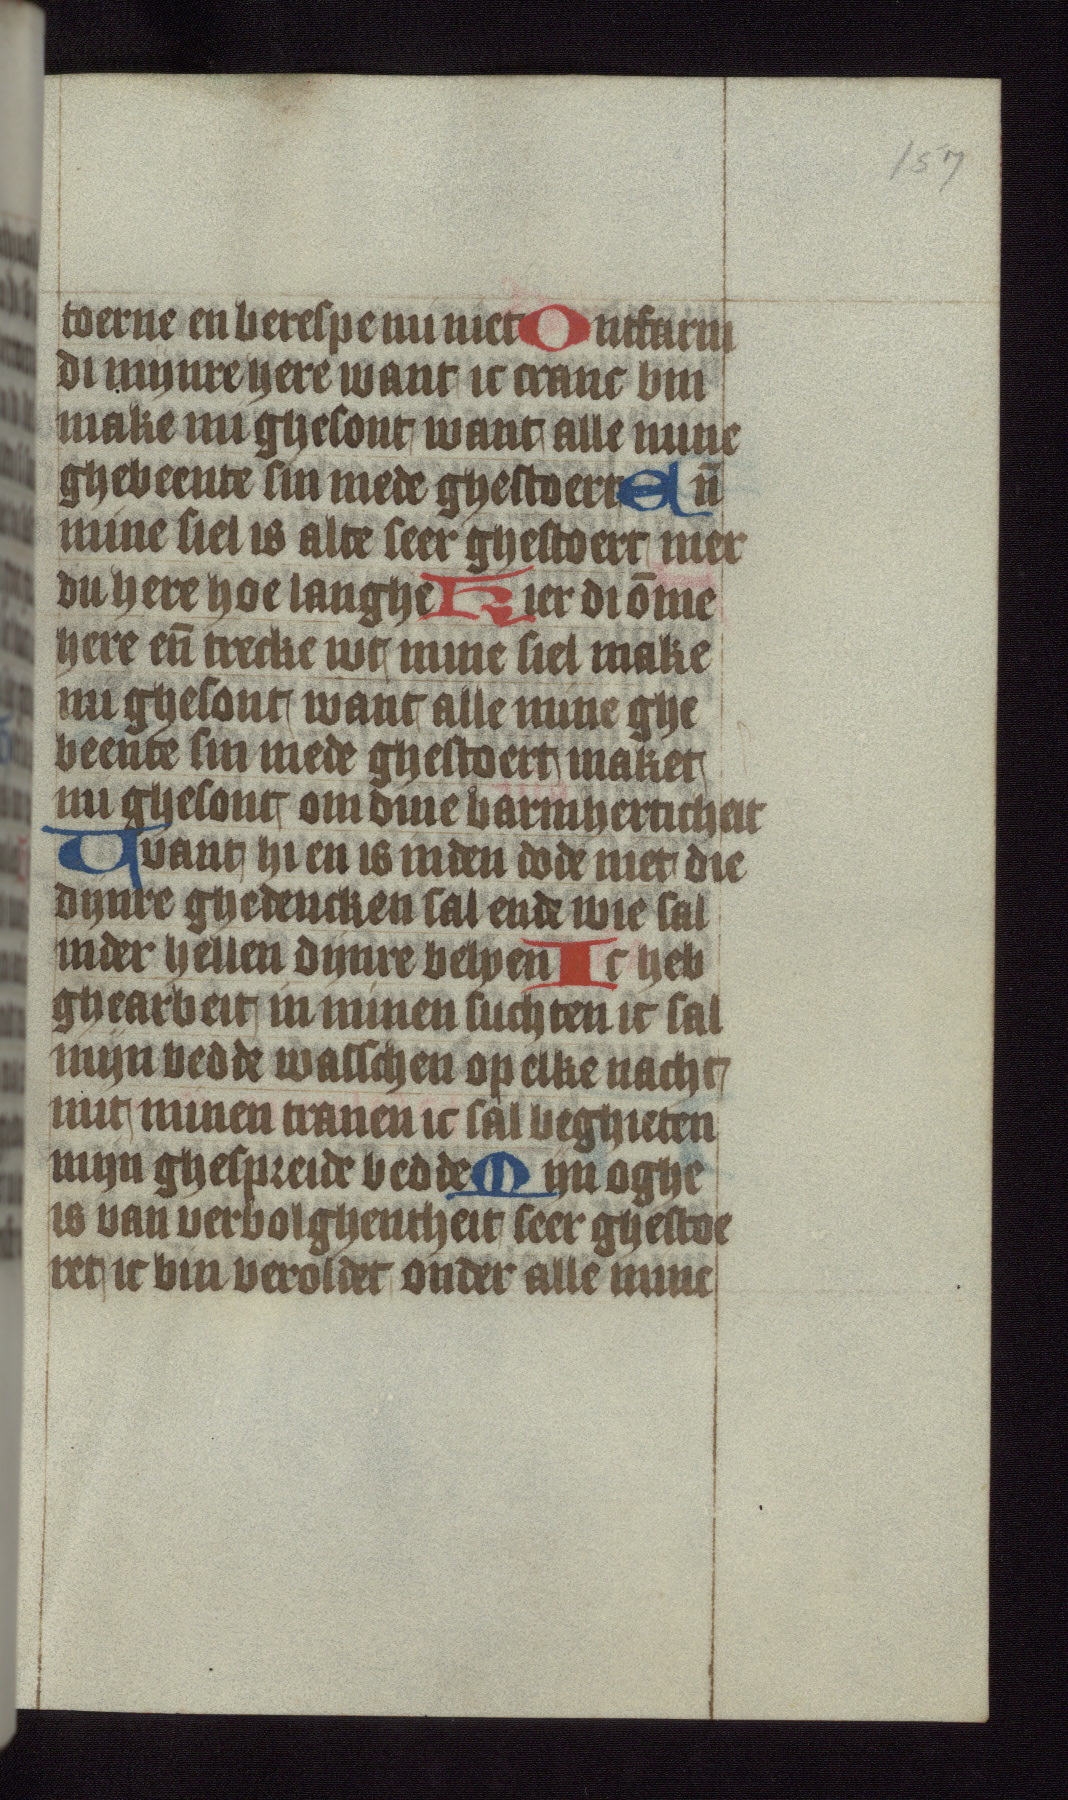 157
toerne en berespe mi niet Ontfarm
di mijnre here want ic cranc bin
make mi ghesont want alle mine
ghebeente sin mede ghestoert En̄
mine siel is alte seer ghestoert mer
du here hoe langhe Kier di ō me
here en̄ trecke wt mine siel make
mi ghesont want alle mine ghe
beente sin mede ghestoert maket
mi ghesont om dine barmherticheit
Want hi en is inden dode niet die
dijnre ghedencken sal ende wie sal
inder hellen dijnre belyen Ic heb
ghearbeit in minen suchten ic sal
mijn bedde wasschen op elke nacht
mit minen tranen ic sal beghieten
mijn ghespreide bedde Mijn oghe
is van verbolghentheit seer ghestoe
ret ic bin veroldet onder alle mine